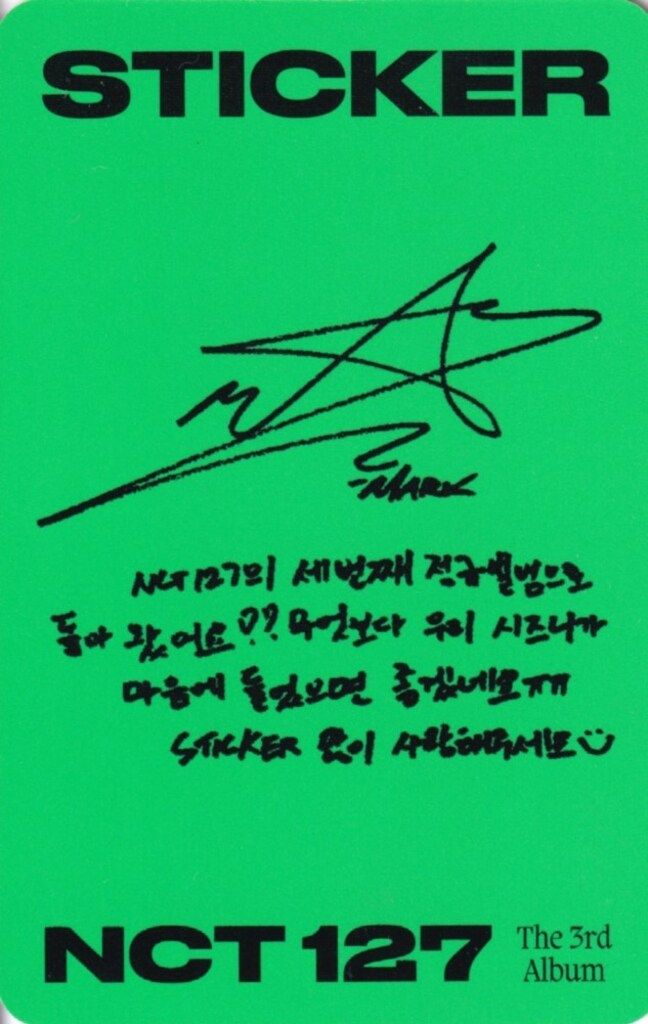 STICKER
-MARK
NCT127의 세번째 정규앨범으로
돌아 왔어요♡?? 무엇보다 우리 시즈니가
마음에 들었으면 좋겠네요ㅠㅠ
STICKER 많이 사랑해주세요☺
NCT 127
The 3rd
Album